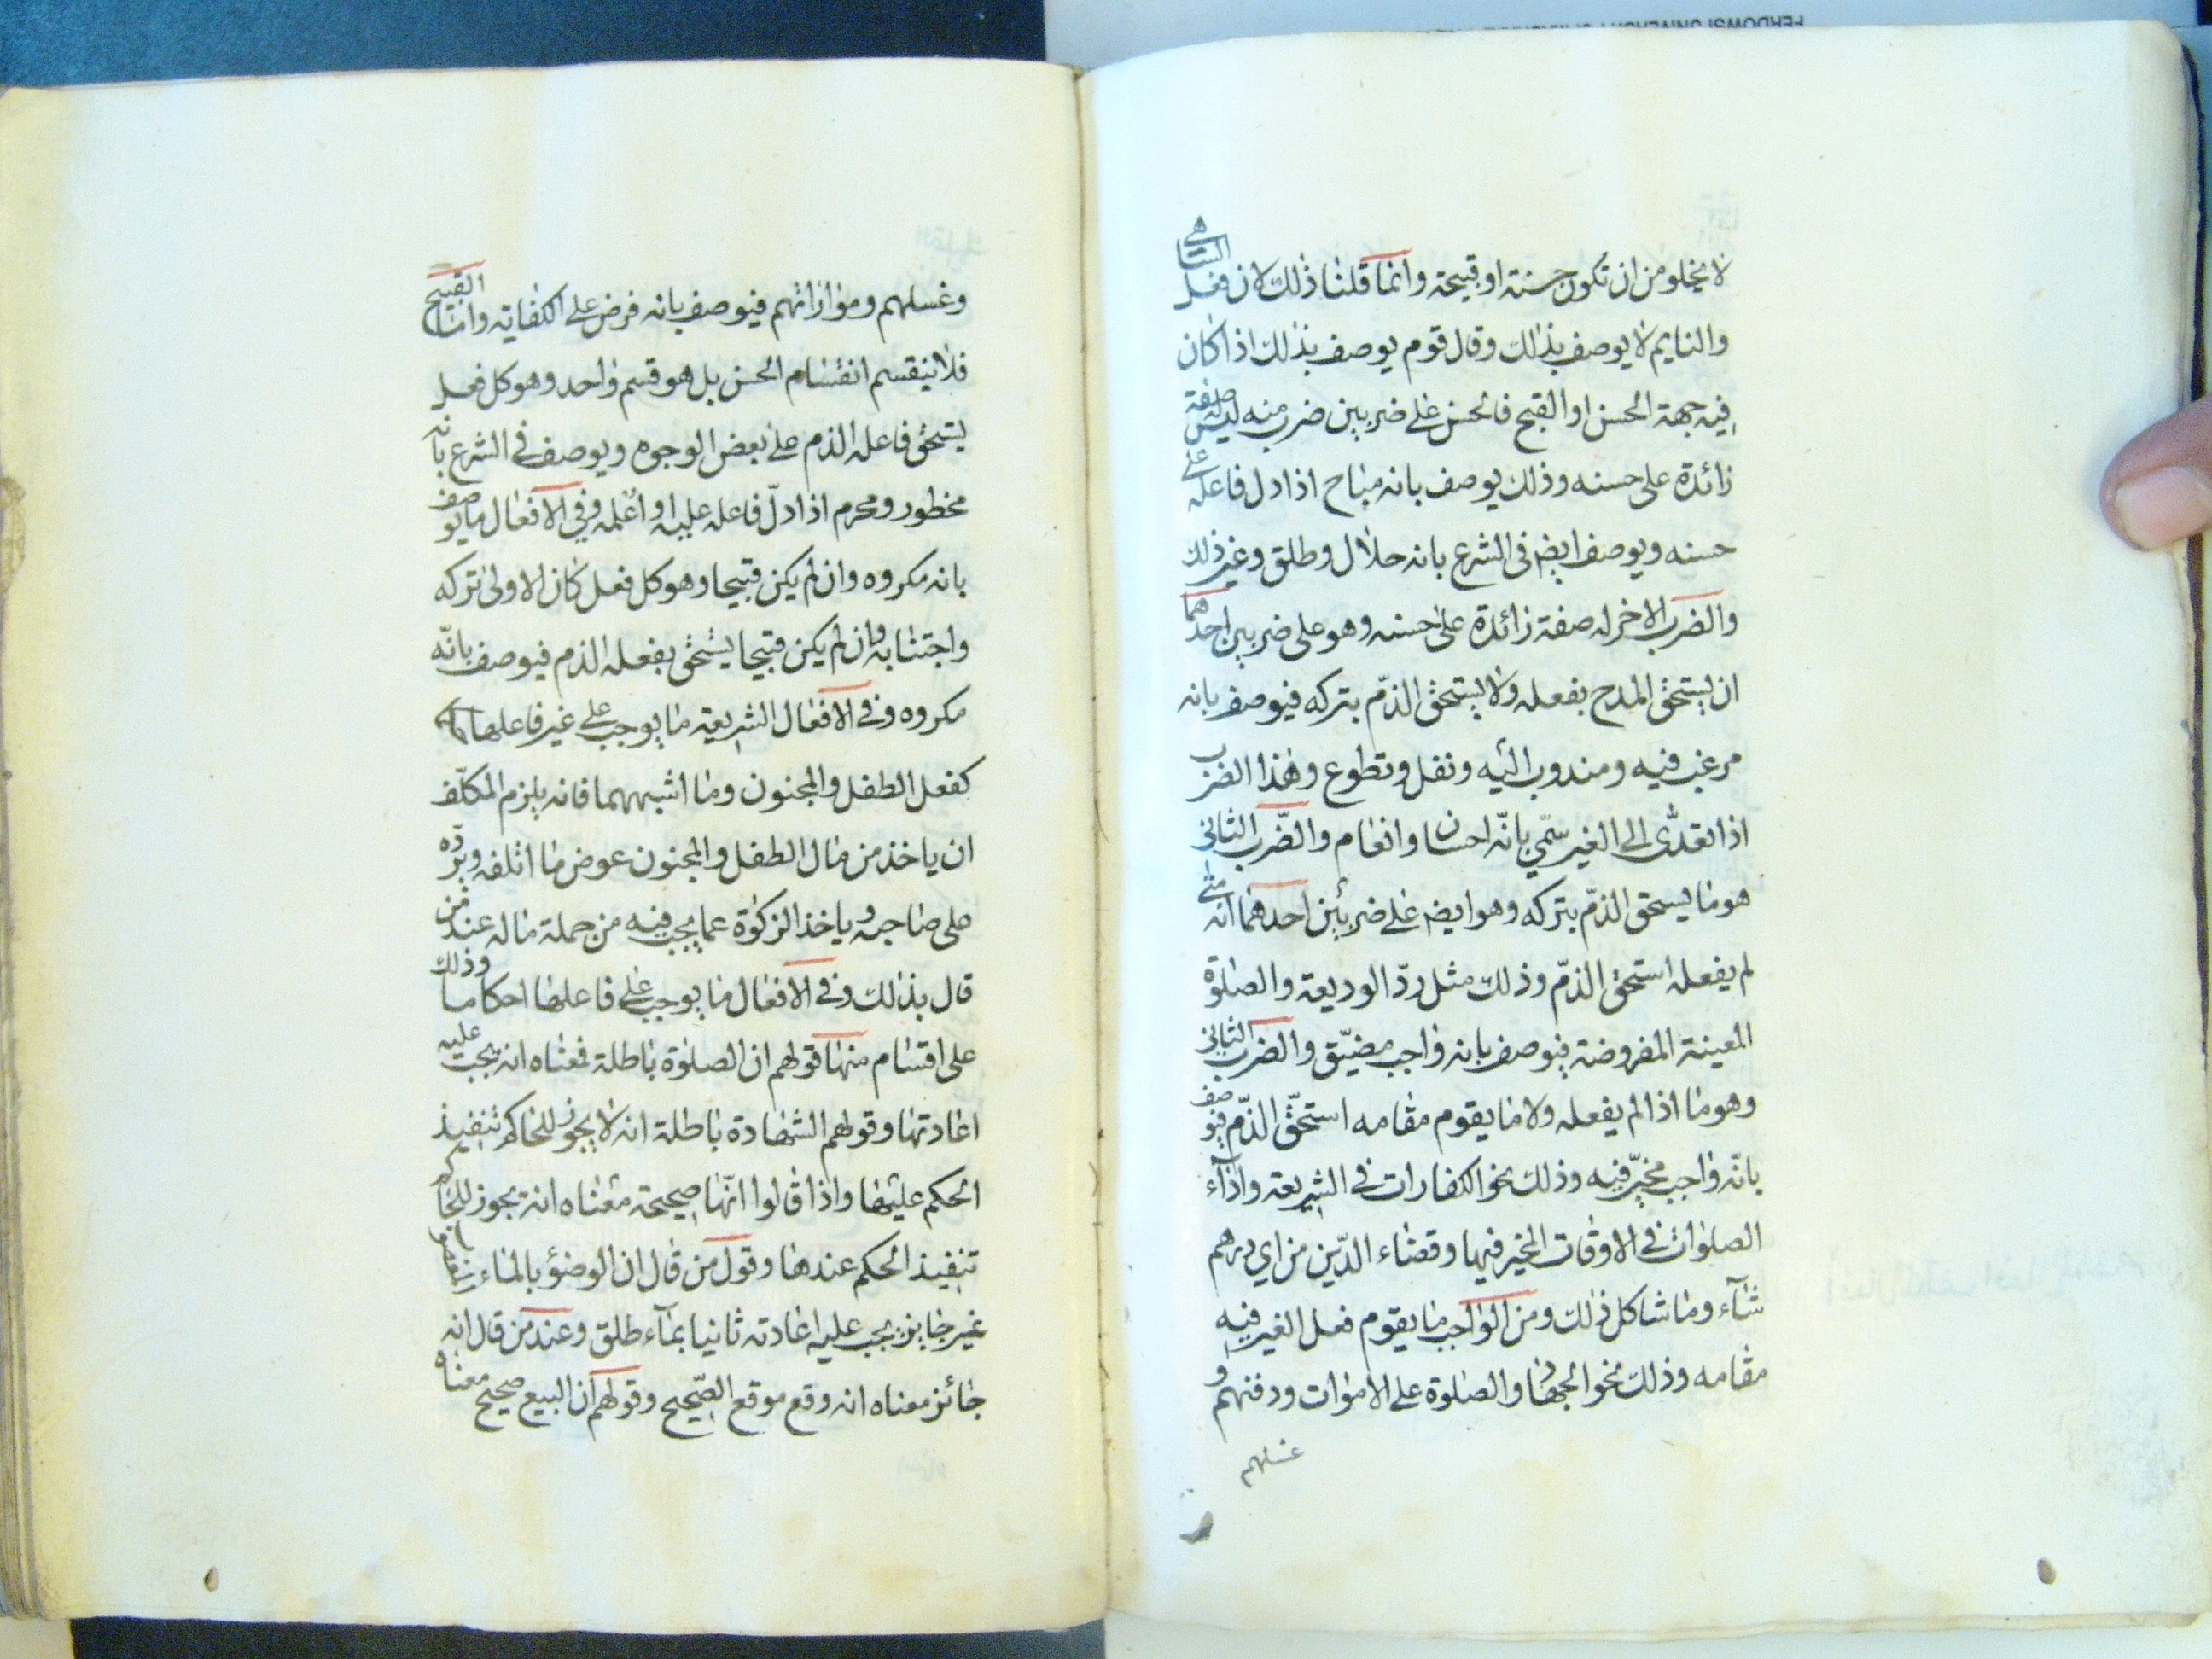 لا يخلو من ان تكون حسنة او قبيحة وانما قلنا ذلك لان فعل الساهي
والنايم لا يوصف بذلك وقال قوم يوصف بذلك اذا كان
فيه جهة الحسن او القبح فالحسن على ضربين ضرب منه ليس له صفة
زائدة على حسنه وذلك يوصف بانه مباح اذا دل فاعله على
حسنه ويوصف ايضا في الشرع بانه حلال وطلق وغير ذلك
والضرب الاخر له صفة زائدة على حسنه وهو على ضربين احدهما
ان يستحق المدح بفعله ولا يستحق الذمّ بتركه فيوصف بانه
مرغب فيه ومندوب اليه ونفل وتطوع وهذا الضرب
اذا تعدّى الى الغير سمّي بانّه احسان وانعام والضّرب الثاني
هو ما يستحق الذمّ بتركه وهو ايضا على ضربين احدهما انه متى
لم يفعله استحق الذمّ وذلك مثل ردّ الوديعة والصلوة
المعينة المفروضة فيوصف بانه واجب مضيّق والضرب الثاني
وهو ما اذا لم يفعله ولا ما يقوم مقامه استحقّ الذمّ فيوصف
بانّه واجب مخيّر فيه وذلك نحو الكفارات في الشريعة واداء
الصلوات في الاوقات المخير فيها وقضاء الدّين من اي درهم
شاء وما شاكل ذلك ومن الواجب ما يقوم فعل الغير فيه
مقامه وذلك نحو الجهاد والصلوة على الاموات ودفنهم و
غسلهم
وغسلهم ومواراتهم فيوصف بانه فرض على الكفاية واما القبيح
فلا ينقسم انقسام الحسن بل هو قسم واحد وهو كل فعل
يستحق فاعله الذم على بعض الوجوه ويوصف في الشرع بانه
محظور ومحرم اذا دلّ فاعله عليه او اعلمه وفي الافعال ما يوصف
بانه مكروه وان لم يكن قبيحا وهو كل فعل كان الاولى تركه
واجتنابه وان لم يكن قبيحا يستحق بفعله الذم فيوصف بانّه
مكروه وفي الافعال الشريعة ما يوجب على غير فاعلها
كفعل الطفل والمجنون وما اشبههما فانه يلزم المكلّف
ان ياخذ من مال الطفل والمجنون عوض ما اتلفه ويردّه
على صاحبه وياخذ الزكوة عما يجب فيه من جملة ماله عند من
قال بذلك وفي الافعال ما يوجب على فاعلها احكاما وذلك
على اقسام منها قولهم ان الصلوة باطلة فمعناه انه يجب عليه
اعادتها وقولهم الشهادة باطلة انه لا يجوز للحاكم تنفيذ
الحكم عليها واذا قالوا انّها صحيحة معناه انه يجوز للحاكم
تنفيذ الحكم عندها وقول من قال ان الوضوء بالماء
غير جايز يجب عليه اعادته ثانيا بماء طلق وعند من قال انه
جائز معناه انه وقع موقع الصّحيح وقولهم ان البيع صحيح معناه